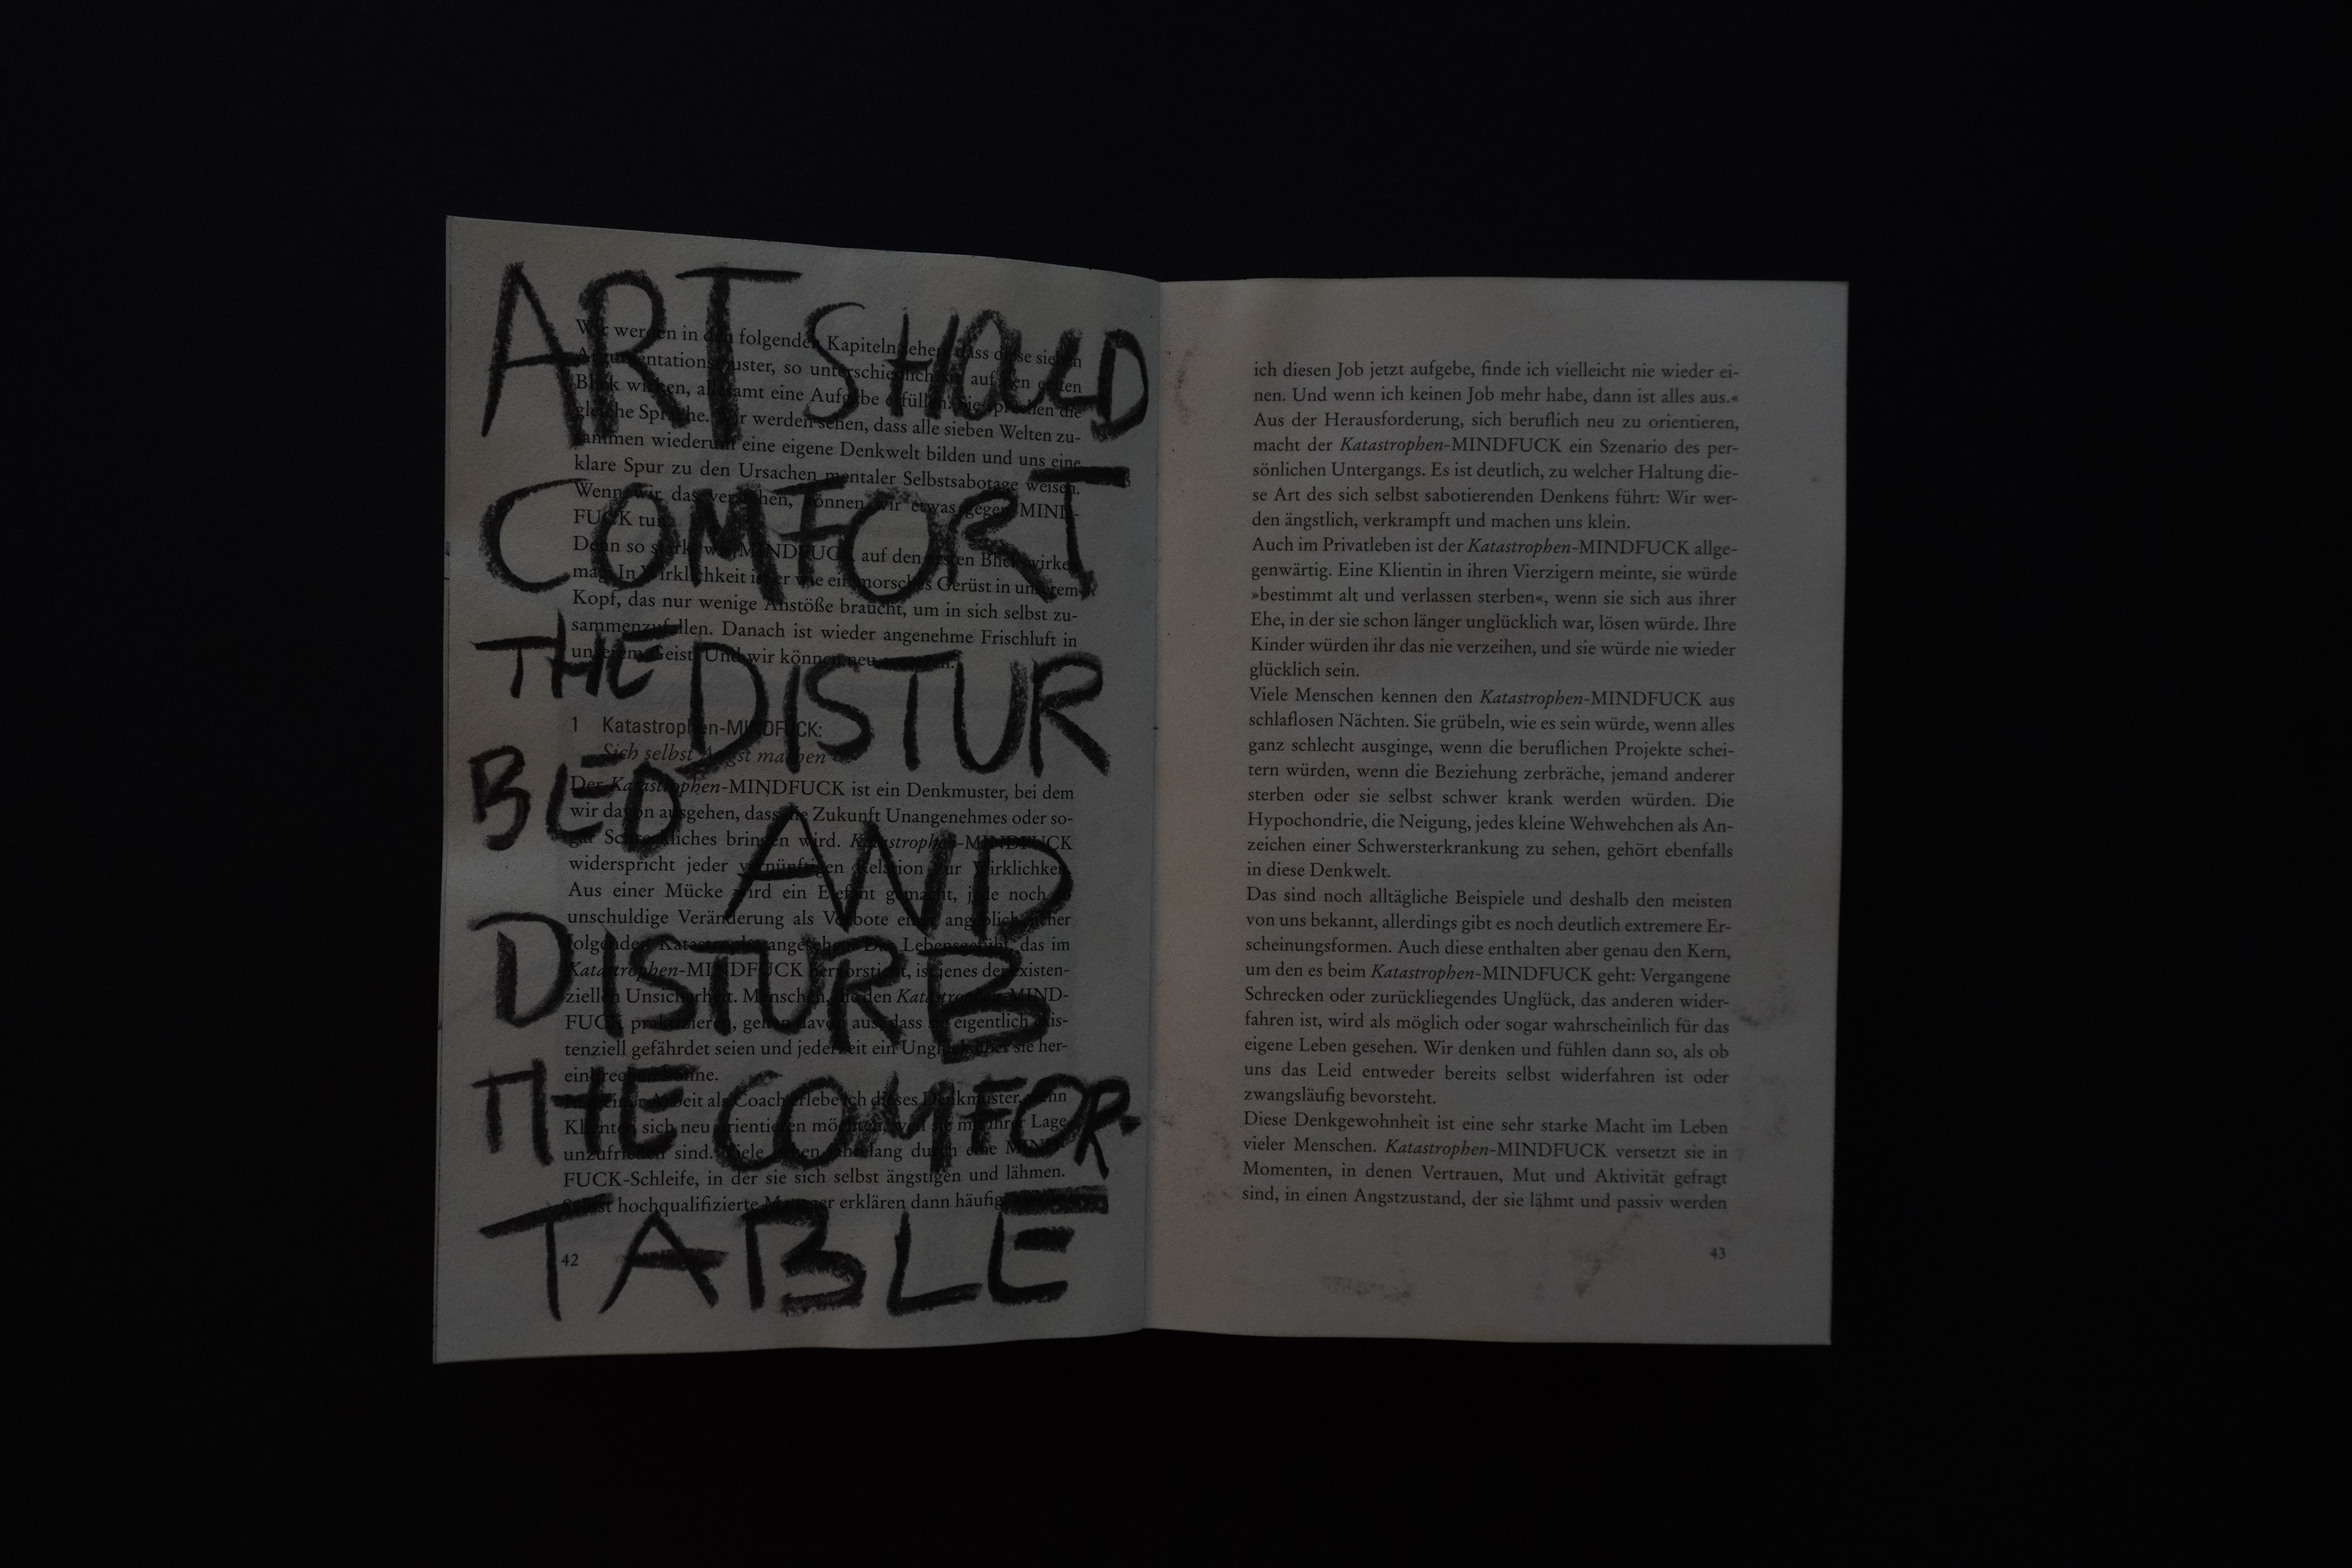 ART SHOULD
COMFORT
THE DISTUR
BLED AND
DISTURB
THE COMFOR-
TABLE
Wir werden in den folgenden Kapiteln sehen, dass diese sieben
Argumentationsmuster, so unterschiedlich sie auf den ersten
Blick wirken, allesamt eine Aufgabe erfüllen: Sie sprechen die
gleiche Sprache. Wir werden sehen, dass alle sieben Welten zu-
sammen wiederum eine eigene Denkwelt bilden und uns eine
klare Spur zu den Ursachen mentaler Selbstsabotage weisen.
Wenn wir das verstehen, können wir etwas gegen MIND-
FUCK tun.
Denn so stark wie MINDFUCK auf den ersten Blick wirken
mag: In Wirklichkeit ist er wie ein morsches Gerüst in unserem
Kopf, das nur wenige Anstöße braucht, um in sich selbst zu-
sammenzufallen. Danach ist wieder angenehme Frischluft in
unserem Geist. Und wir können neu
1 Katastrophen-MINDFUCK:
Sich selbst Angst machen
Der Katastrophen-MINDFUCK ist ein Denkmuster, bei dem
wir davon ausgehen, dass die Zukunft Unangenehmes oder so-
gar Schreckliches bringen wird. Katastrophen-MINDFUCK
widerspricht jeder vernünftigen Relation zur Wirklichkeit.
Aus einer Mücke wird ein Elefant gemacht, jede noch so
unschuldige Veränderung als Vorbote einer angeblich sicher
folgenden Katastrophe angesehen. Das Lebensgefühl, das im
Katastrophen-MINDFUCK hervorsticht, ist jenes der existen-
ziellen Unsicherheit. Menschen, die den Katastrophen-MIND-
FUCK praktizieren, gehen davon aus, dass sie eigentlich exis-
tenziell gefährdet seien und jederzeit ein Unglück über sie her-
einbrechen könne.
In meiner Arbeit als Coach erlebe ich dieses Denkmuster, wenn
Klienten sich neu orientieren möchten, weil sie mit ihrer Lage
unzufrieden sind. Viele gehen jahrelang durch eine MIND-
FUCK-Schleife, in der sie sich selbst ängstigen und lähmen.
Selbst hochqualifizierte Manager erklären dann häufig:
42
ich diesen Job jetzt aufgebe, finde ich vielleicht nie wieder ei-
nen. Und wenn ich keinen Job mehr habe, dann ist alles aus.«
Aus der Herausforderung, sich beruflich neu zu orientieren,
macht der Katastrophen-MINDFUCK ein Szenario des per-
sönlichen Untergangs. Es ist deutlich, zu welcher Haltung die-
se Art des sich selbst sabotierenden Denkens führt: Wir wer-
den ängstlich, verkrampft und machen uns klein.
Auch im Privatleben ist der Katastrophen-MINDFUCK allge-
genwärtig. Eine Klientin in ihren Vierzigern meinte, sie würde
»bestimmt alt und verlassen sterben«, wenn sie sich aus ihrer
Ehe, in der sie schon länger unglücklich war, lösen würde. Ihre
Kinder würden ihr das nie verzeihen, und sie würde nie wieder
glücklich sein.
Viele Menschen kennen den Katastrophen-MINDFUCK aus
schlaflosen Nächten. Sie grübeln, wie es sein würde, wenn alles
ganz schlecht ausginge, wenn die beruflichen Projekte schei-
tern würden, wenn die Beziehung zerbräche, jemand anderer
sterben oder sie selbst schwer krank werden würden. Die
Hypochondrie, die Neigung, jedes kleine Wehwehchen als An-
zeichen einer Schwersterkrankung zu sehen, gehört ebenfalls
in diese Denkwelt.
Das sind noch alltägliche Beispiele und deshalb den meisten
von uns bekannt, allerdings gibt es noch deutlich extremere Er-
scheinungsformen. Auch diese enthalten aber genau den Kern,
um den es beim Katastrophen-MINDFUCK geht: Vergangene
Schrecken oder zurückliegendes Unglück, das anderen wider-
fahren ist, wird als möglich oder sogar wahrscheinlich für das
eigene Leben gesehen. Wir denken und fühlen dann so, als ob
uns das Leid entweder bereits selbst widerfahren ist oder
zwangsläufig bevorsteht.
Diese Denkgewohnheit ist eine sehr starke Macht im Leben
vieler Menschen. Katastrophen-MINDFUCK versetzt sie in
Momenten, in denen Vertrauen, Mut und Aktivität gefragt
sind, in einen Angstzustand, der sie lähmt und passiv werden
43